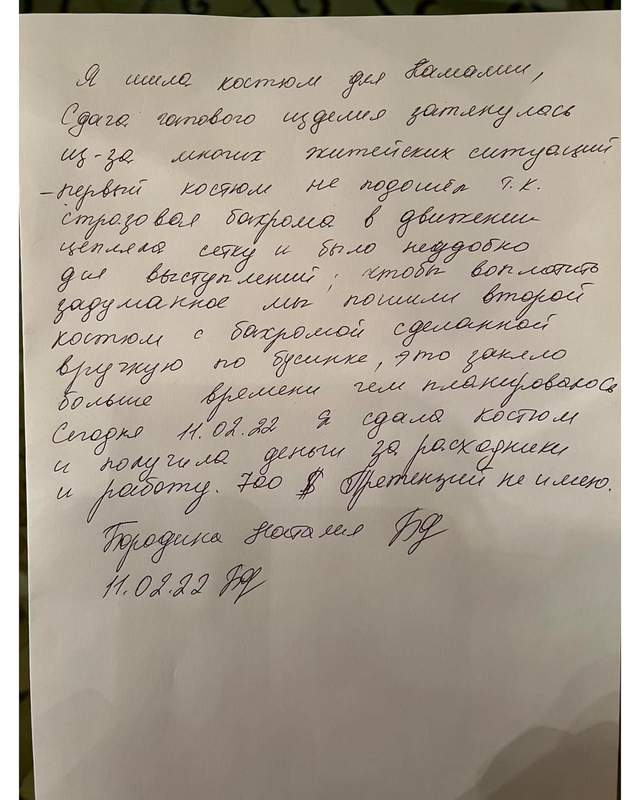 Я шила костюм для Натальи,
Сдача готового изделия затянулась
из-за многих житейских ситуаций
-первый костюм не подошёл т.к.
стразовая бахрома в движении
цепляла сетку и было неудобно
для выступлений; чтобы воплотить
задуманное мы пошили второй
костюм с бахромой сделанной
вручную по бусинке, это заняло
больше времени чем планировалось
Сегодня 11.02.22 я сдала костюм
и получила деньги за расходники
и работу. 700 $ Претензий не имею.
Бородина Наталия
11.02.22